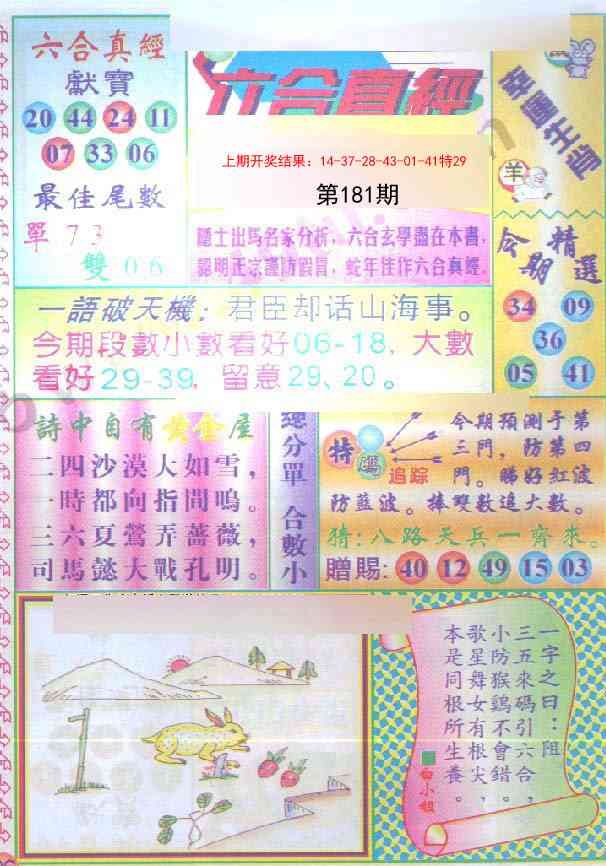 六合真經
獻寶
20 44 24 11
07 33 06
最佳尾數
單73
雙06
六合真經
上期开奖结果：14-37-28-43-01-41特29
第181期
隱士出馬名家分析，六合玄學盡在本書，
認明正宗謹防假冒，蛇年佳作六合真經。
幸運生肖
羊
今期精選
34 09
36
05 41
一語破天機：君臣却话山海事。
今期段數小數看好06-18，大數
看好29-39，留意29、20。
詩中自有黃金屋
二四沙漠大如雪，
一時都向指間鳴。
三六夏鶯弄薔薇，
司馬懿大戰孔明。
總分單 合數小
特碼
追踪
今期預測于第
三門，防第四
門。睇好紅波
防藍波。捧雙數追大數。
猜：八路天兵一齊來。
贈賜：40 12 49 15 03
一字之曰：阻
三五來碼引六合，
小防猴鷄不會錯，
歌星舞女有根尖，
本是同根所生養。
白小姐